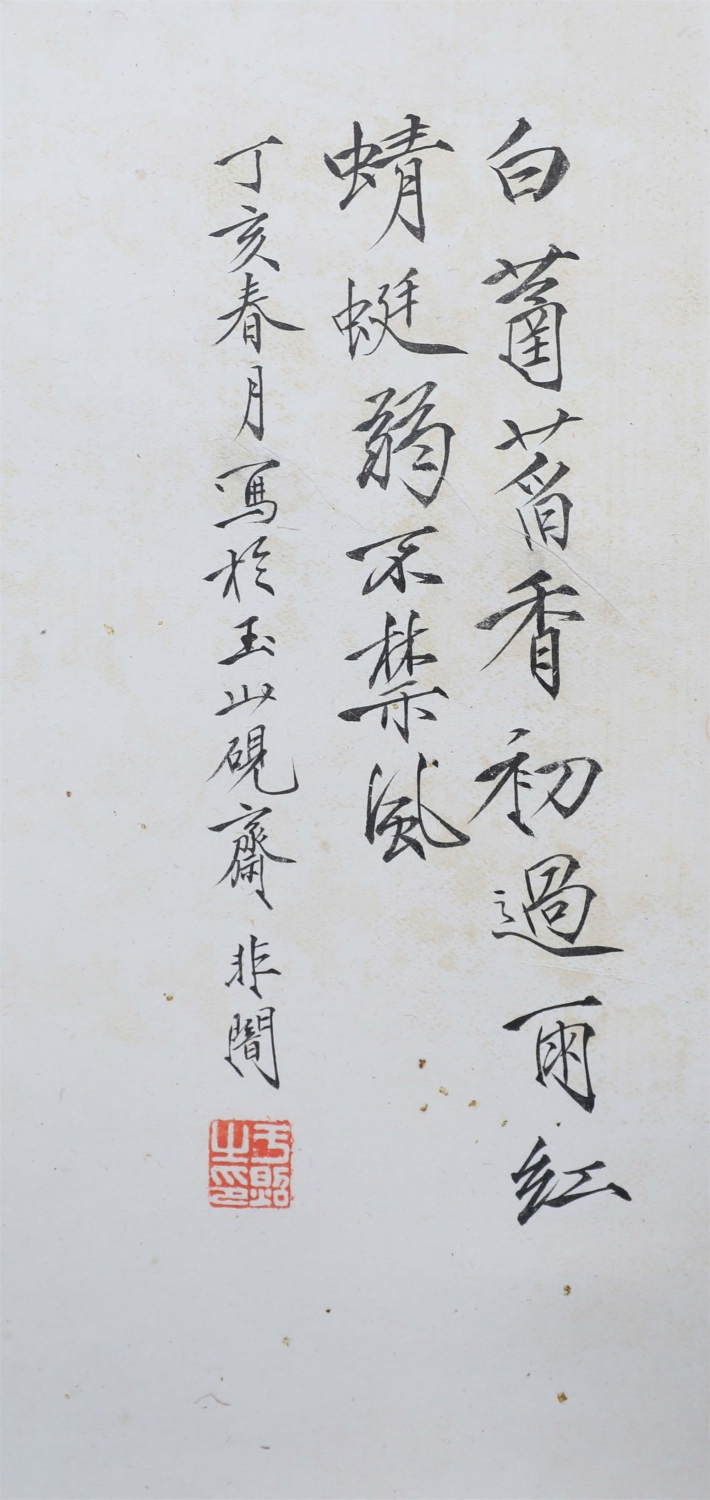 白菡萏香初過雨紅
蜻蜓弱不禁風
丁亥春月寫於玉山硯齋 非闇
于照之印